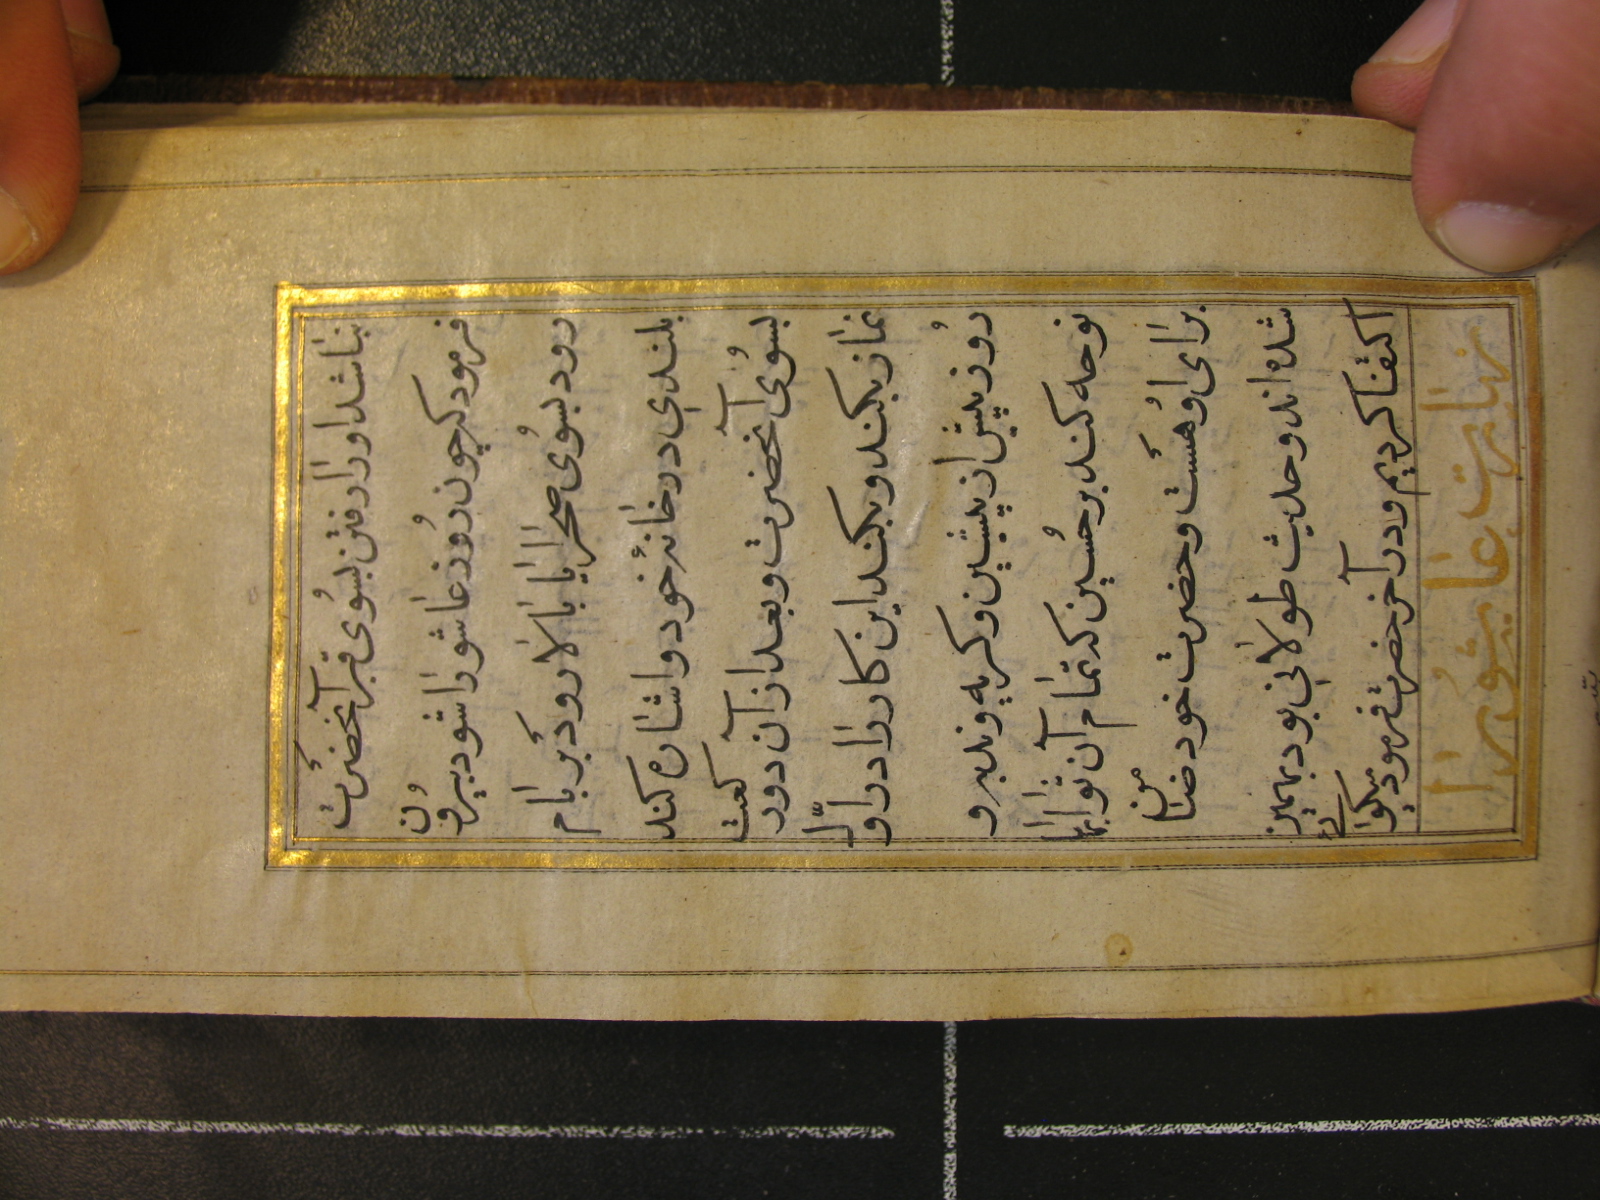 نباشد او را رفتن بسوی قبر آنحضرت
فرمود که چون روز عاشورا شود بیرون
رود بسوی صحرا یا بالا رود بر بام
بلندی در خانهٔ خود و اشاره کند
بسوی آنحضرت و بعد از آن دو رکعت
نماز بکند و بکند این کار را در اوّل
روز پیش از پیشین و گریه و ندبه و
نوحه کند بر حسین که تمام آن ثوابها
برای او هست و حضرت خود ضامن
شده اند و حدیث طولانی بود بهمین
اکتفا کردیم و در آخر حضرت فرمود میگوئی
زیارت عاشورا